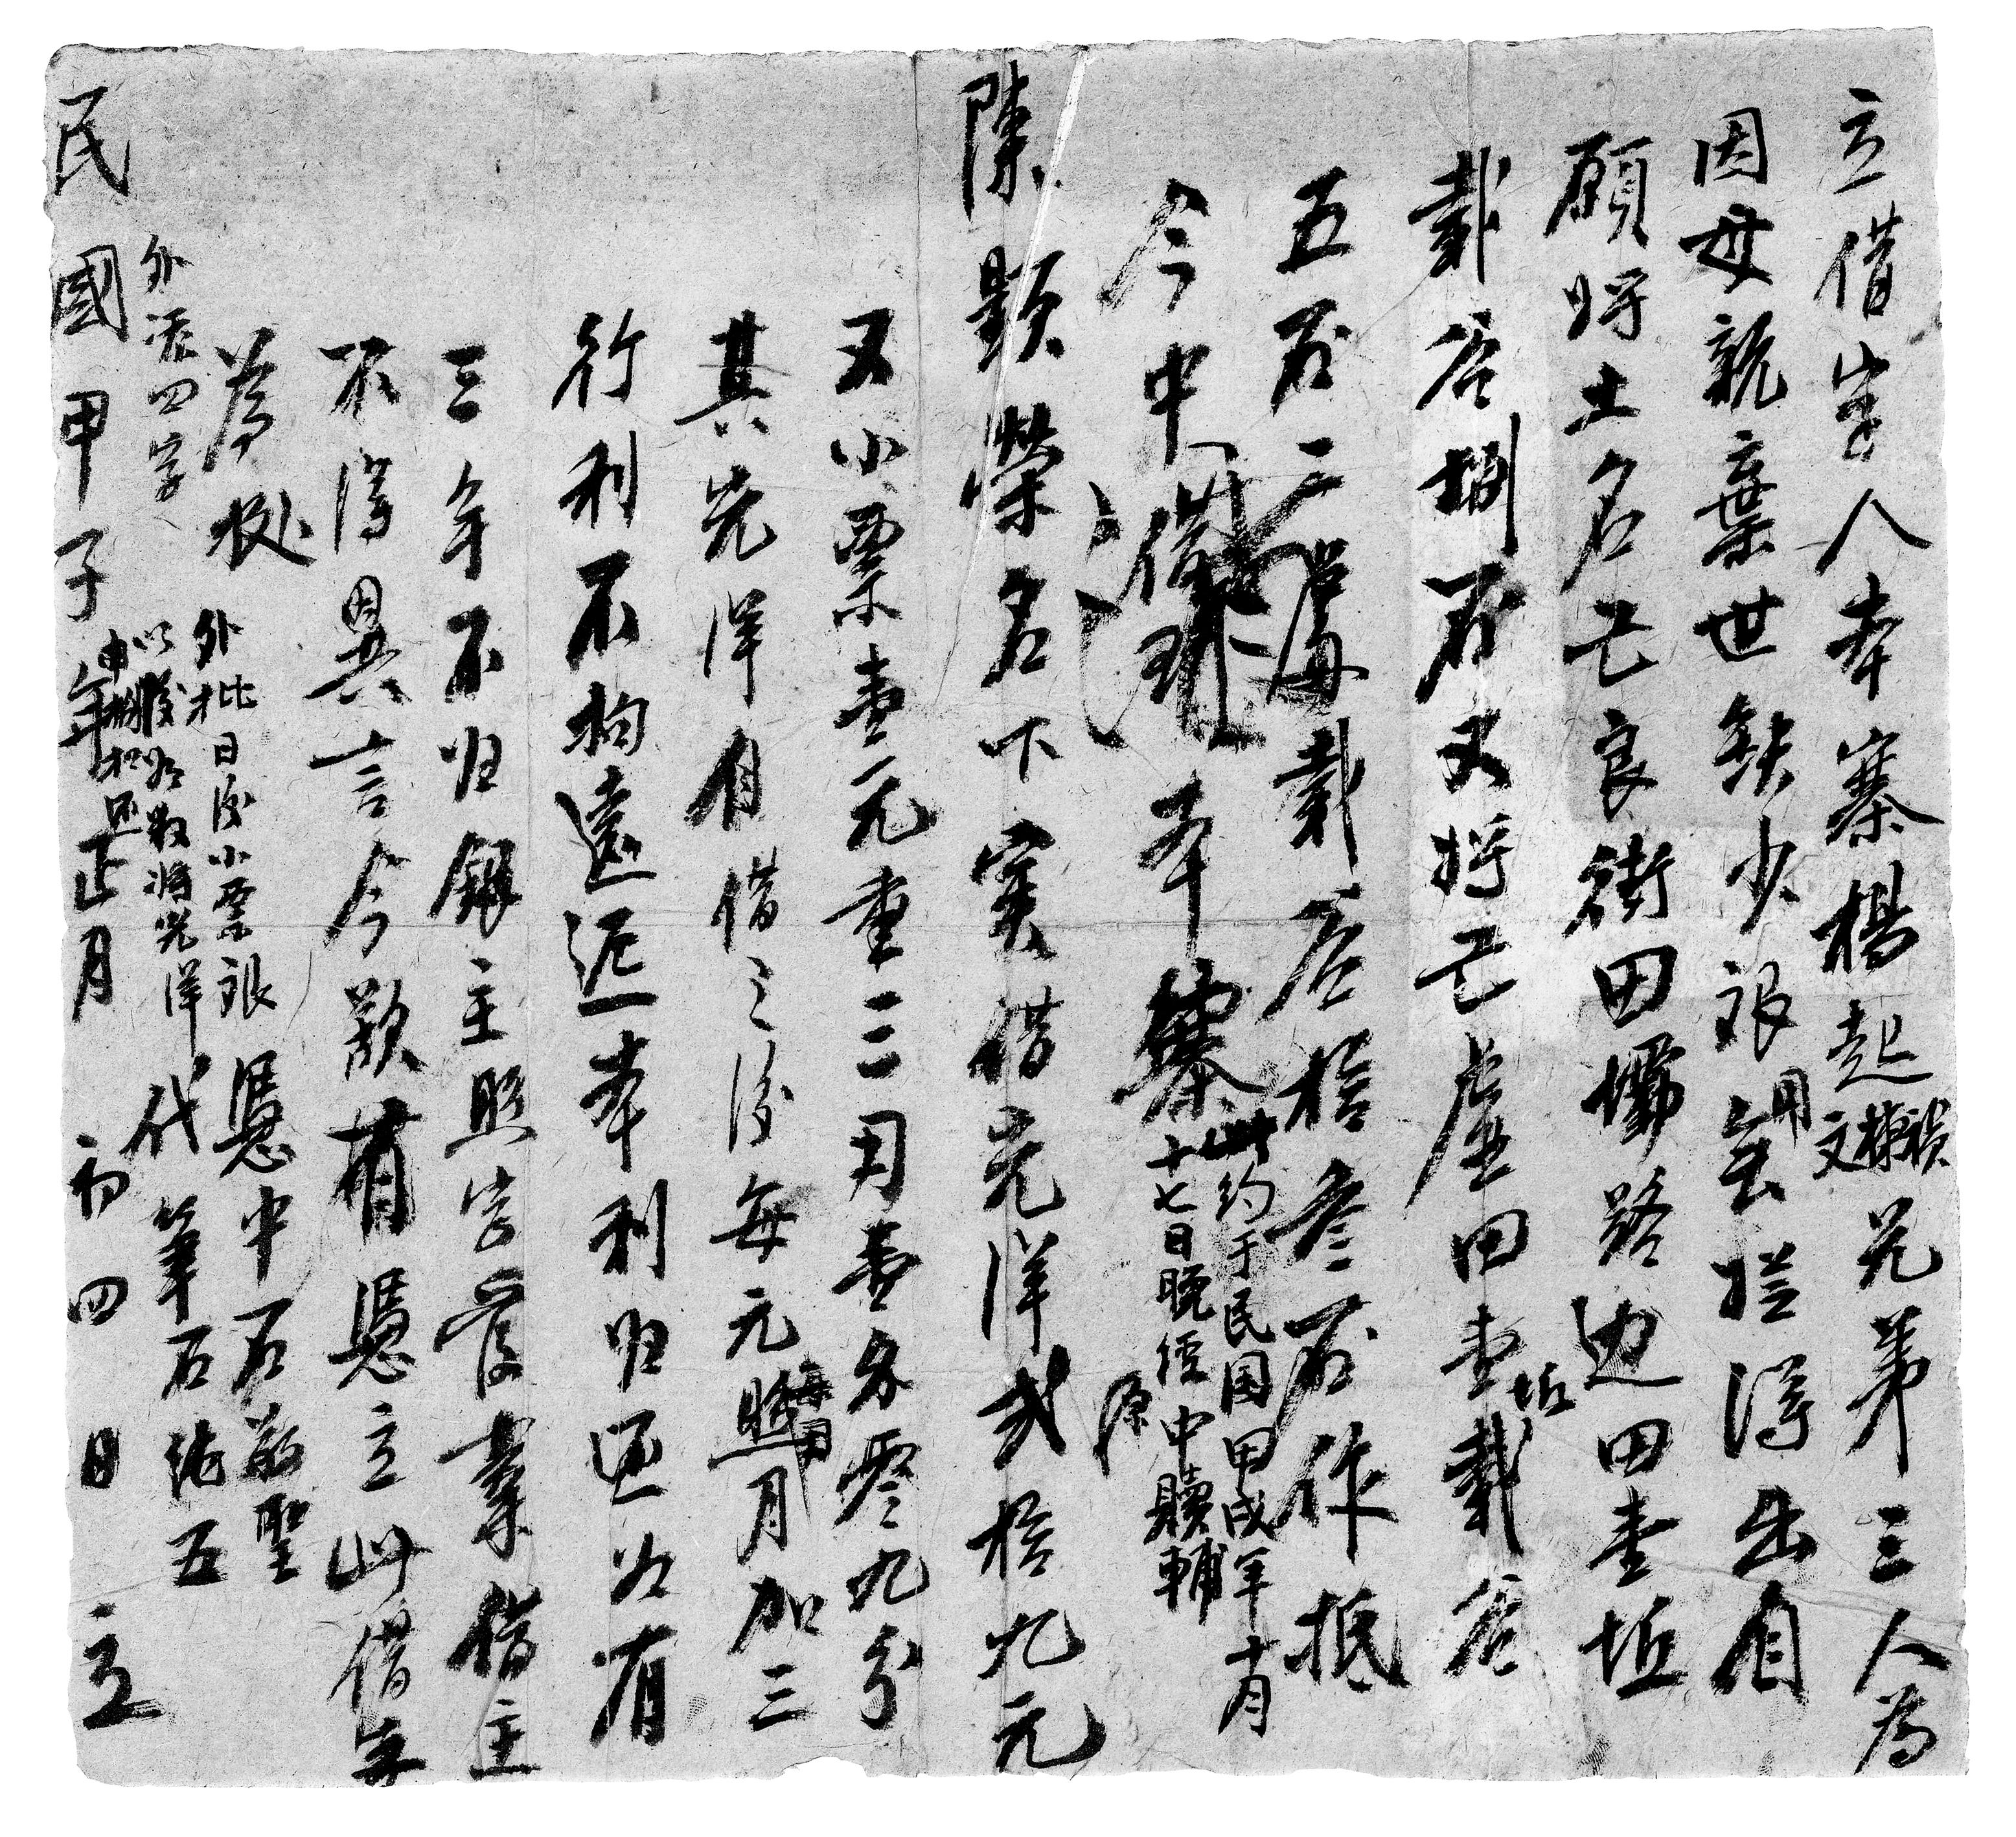 立借字人本寨楊起文棟禎兄弟三人為
因母親棄世缺少銀用無從得出自
願將土名芒良街田壩路边田壹坵
載谷捌石又將芒虛田壹坵載谷
五石二處載谷拾叁石作抵
今中借到本寨
此约于民国甲戌年十月
十七日晚经中贖輔
源
陳顯榮名下實借光洋弍拾九元
又小票壹元重三円壹分零九分
其光洋自借之後每元照月加三
行利不拘遠近本利归还如有
三年不归銀主照字管業借主
不得異言今欲有憑立此借字
為据
外批日後小票銀
以後如数將光洋
憑中石前聖
外添四字
代筆石純五
民國甲子年正月初四日立